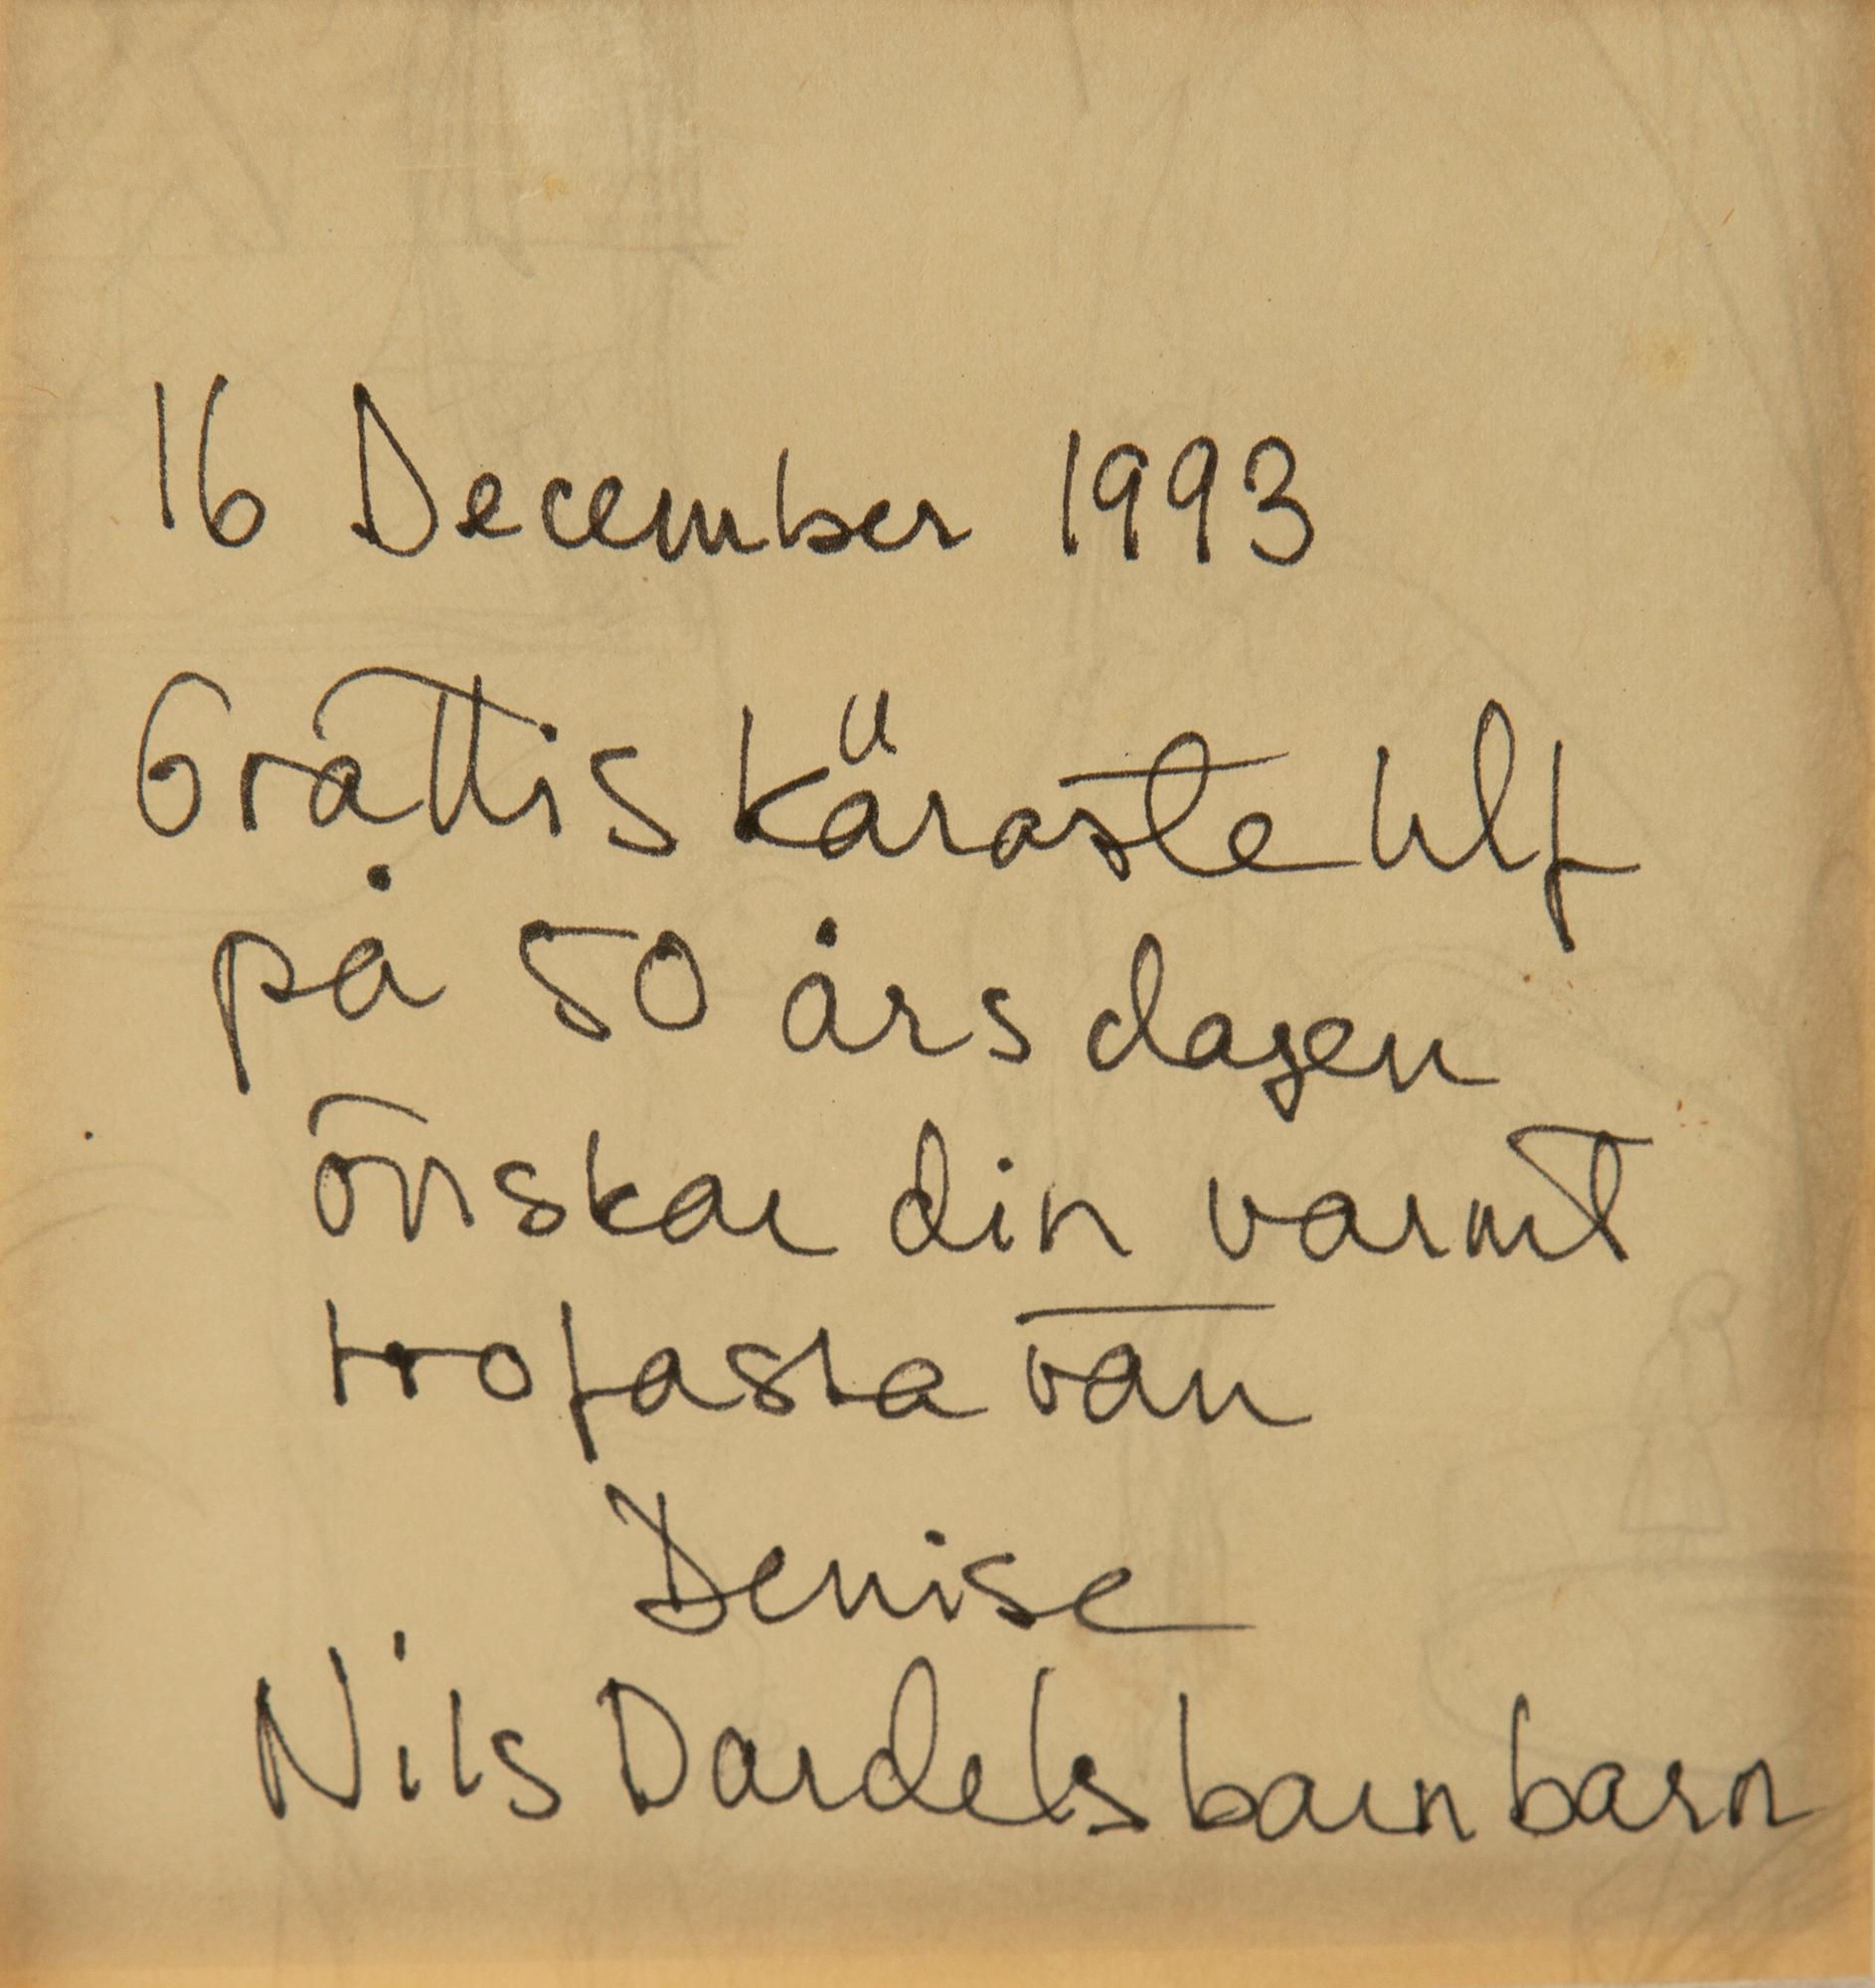 16 December 1993
Grattis käraste Ulf
på 50 års dagen
önskar din varmt
trofasta vän
Denise
Nils Dardels barnbarn